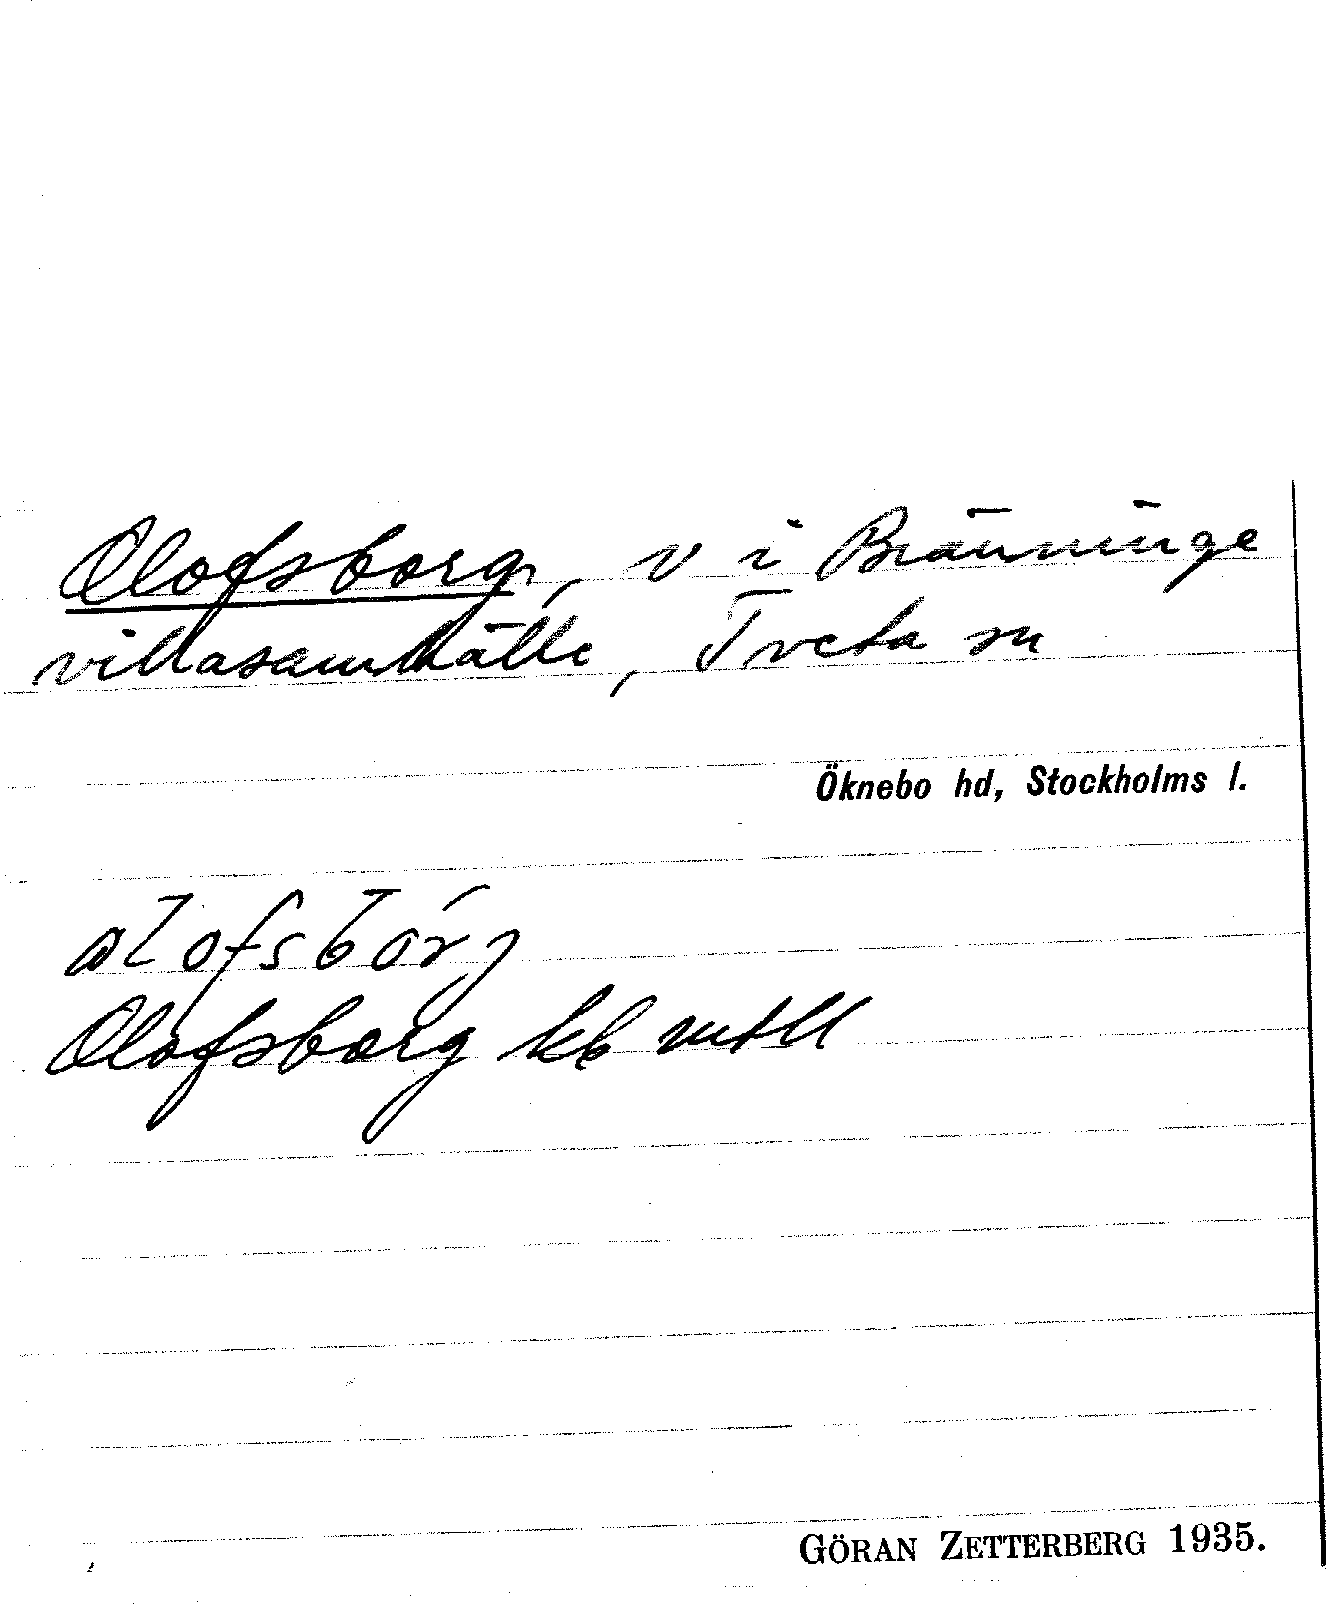 Olofsborg, v i Bränninge
villasamhälle, Tveta sn
Öknebo hd, Stockholms l.
olofsbórj
Olofsborg kb mtll
GÖRAN ZETTERBERG 1935.